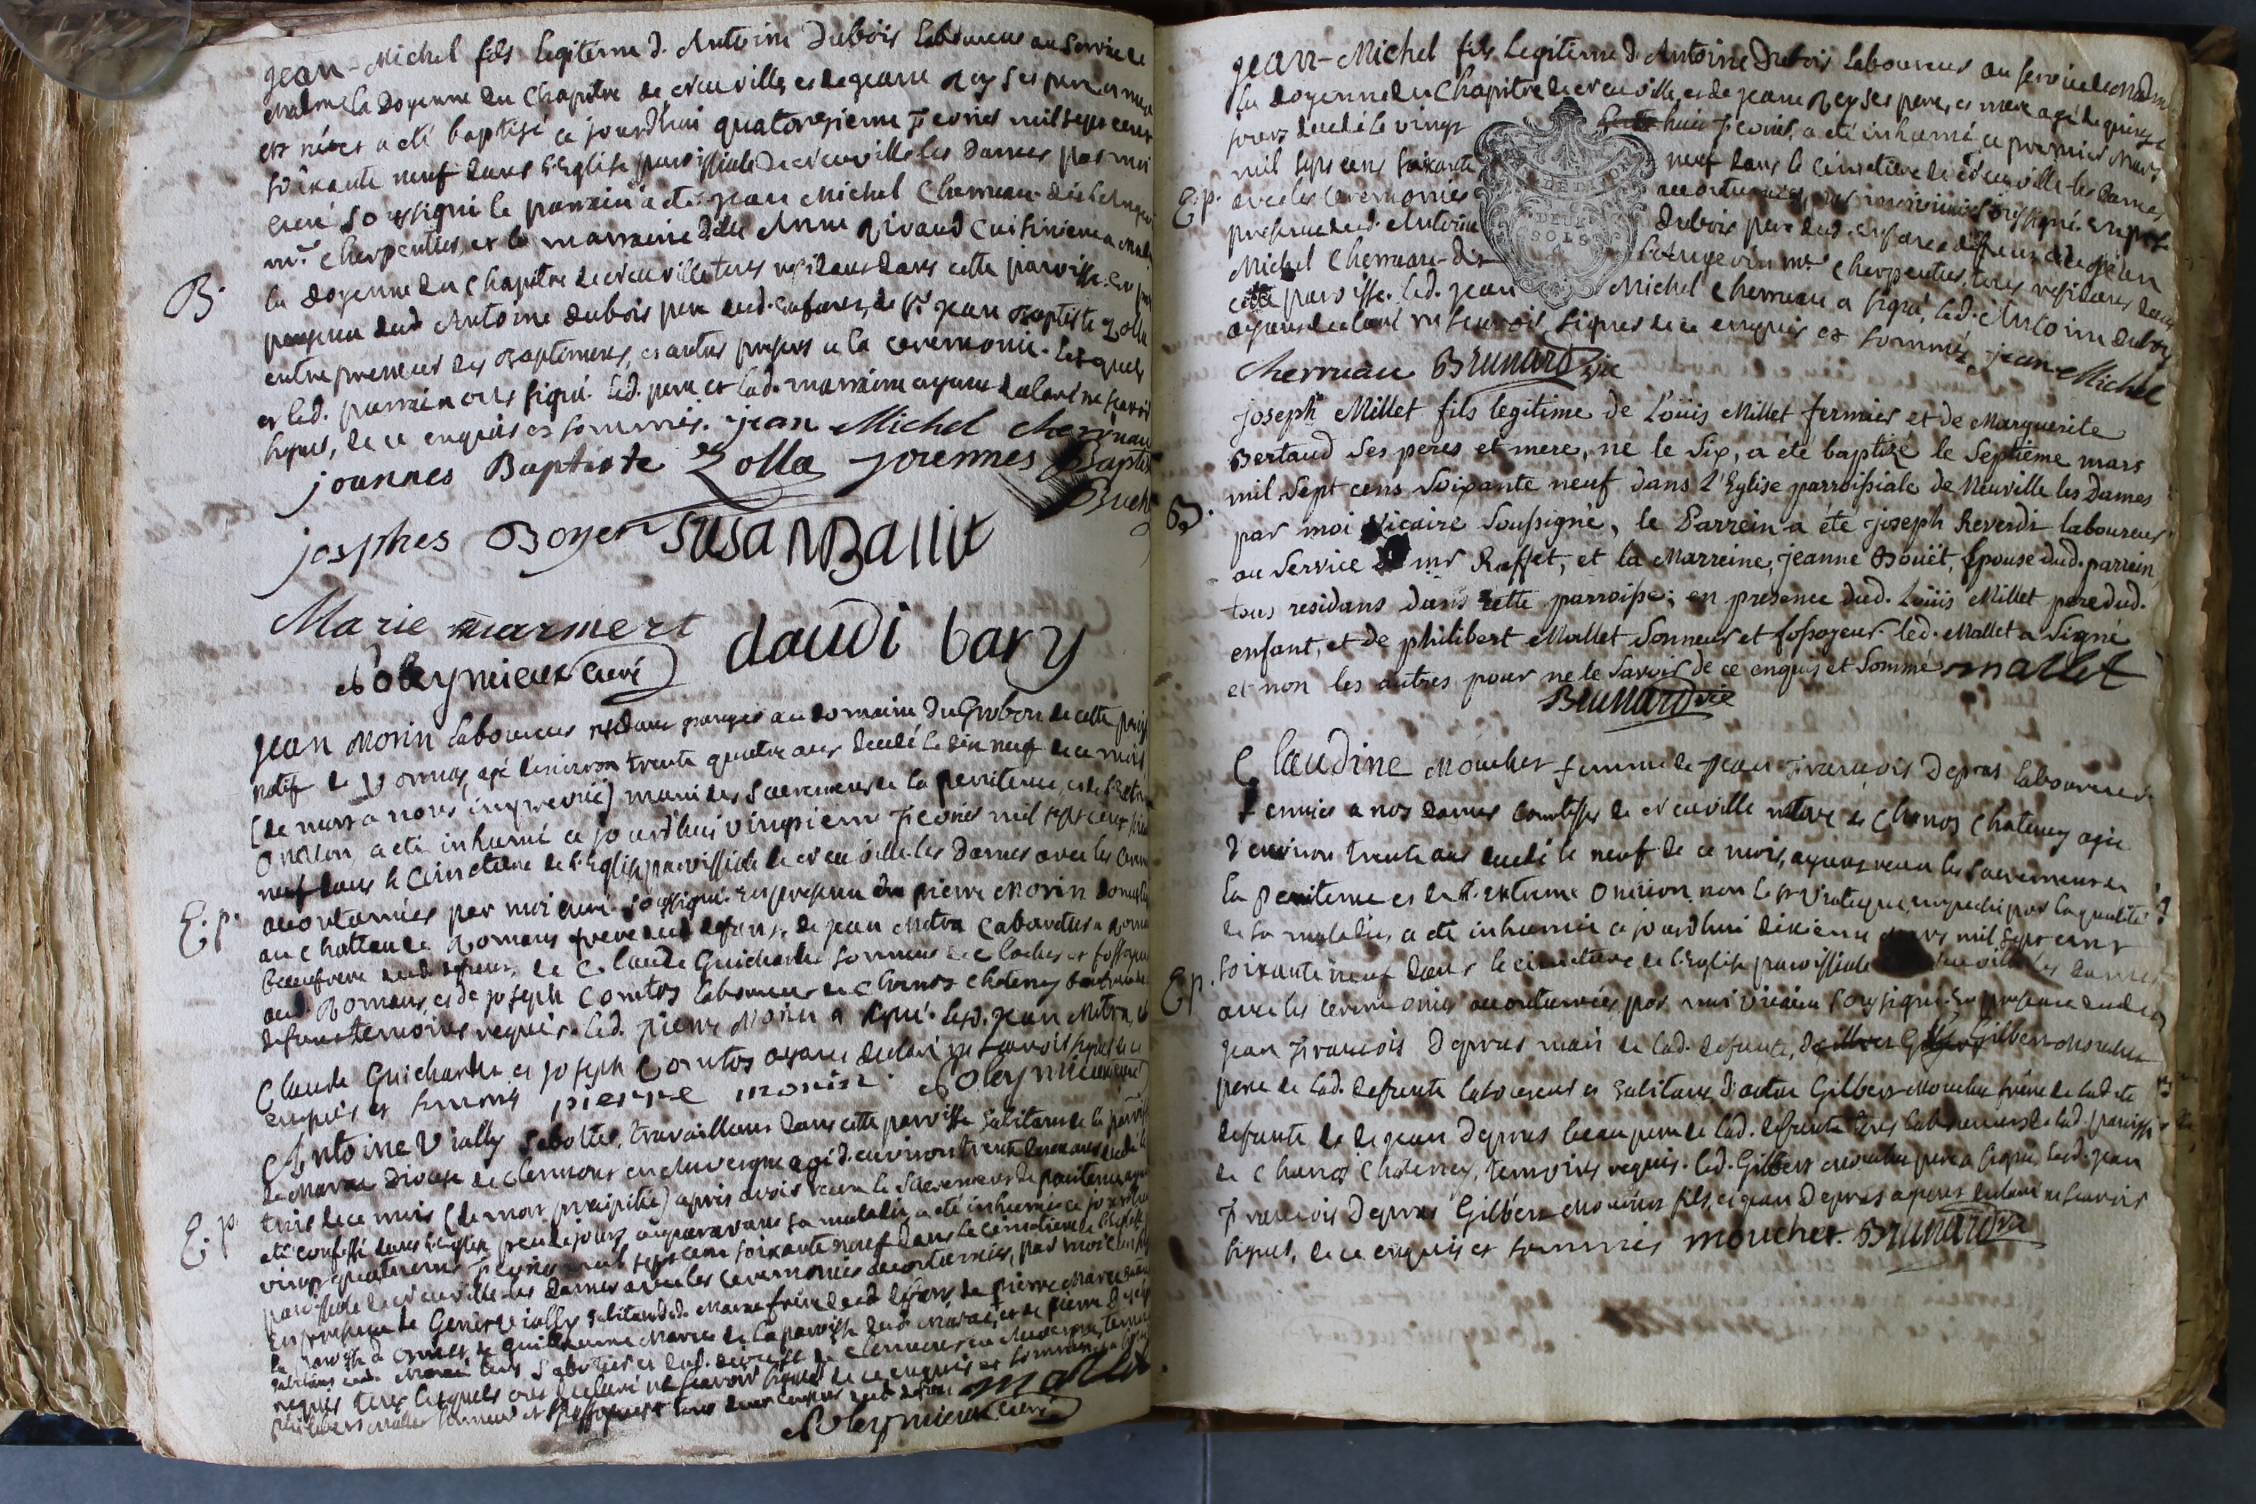 Jean-Michel fils legitime d. Antoine Dubois laboureur au service de
madme la Doyenne du Chapitre de Neuville, et de jeane Rey ses pere et mere
est né et a été baptisé ce jourdhui quatorzieme Fevrier mil sept cent
soixante neuf dans l'Eglise paroissiale de Neuville les Dames par moi
curé soussigné le parrain a été jean Michel Cherruau dit
mre Charpentier, et la marraine dlle Anne Rivaud Cuisiniere a made
B.
la doyenne du Chapitre de Neuville tous residants dans cette paroisse. en
presence dud Antoine dubois pere dud. enfant, de Sr jean Baptiste Zolla
entrepreneur des Batimens, et autres presens a la ceremonie. lesquels
et led. parrain ont signé. led. pere et lad. marraine ayant declaré ne scavoir
signer, de ce enquis et sommés. jean Michel cherruau
joannes Baptiste Zolla joannes Baptis
josphes Boyer SusanBallit
Marie marmert daudi bary
Noleymieux curé
Jean Morin laboureur residant granger au domaine du Grobon de cette
natif de Vonnas, agé denviron trente quatre ans decedé le dix neuf de ce mois
(de mort a nous imprevue) muni des Sacremens de la penitence, et de l'extreme
onction, a été inhumé ce jourd'hui vingtieme Fevrier mil sept cent
neuf dans le Cimetiere de l'Eglise paroissiale de Neuville les Dames avec les
E. p.
accoutumées par moi curé soussigné. en presence de pierre Morin
au Chateau de Romans frere dud defunt, de jean Metra Cabaretier a
beaufrere dud defunt, de Claude Guichardet sonneur de cloches et fossoyeur
aud. Romans, et de joseph Comtos laboureur de Chanos Chatenay
defunt temoins requis. led. pierre Morin a signé. led. jean Metra,
Claude Guichardet et joseph Comtos ayant declaré ne scavoir signer de ce
enquis et sommés pierre morin. Noleymieux curé
Antoine Vially Sabotier, travaillant dans cette paroisse habitant de la
de Marac Diocese de Clermont en Auvergne agé d'environ trente
trois de ce mois (de mort precipitée) apres avoir recu le Sacrement de penitence
E. p.
été confessé dans l'Eglise peu de jours auparavant sa maladie, a été inhumé ce
vingt quatrieme Fevrier mil sept cent soixante neuf dans le Cimetiere de l'Eglise
paroissiale de Neuville les Dames avec les ceremonies accoutumées, par moi curé
en presence de Vially habitant de Marac frere dud defunt, de pierre
la paroisse de de Guillaume de la paroisse dud Marac, et de pierre
requis tous lesquels ont declaré ne scavoir signer de ce enquis et sommés
philibert Mallet sonneur et fossoyeur mallet
Noleymieux curé
Jean-Michel fils legitime d. Antoine Dubois laboureur au service de Madme
la doyenne du Chapitre de Neuville, et de jeane Rey ses pere, et mere agé de quinze
jours decedé le vingt huit Fevrier, a été inhumé, ce premier Mars
mil sept cens soixante neuf dans le cimetiere de Neuville-les Dames
E. p.
avec les ceremonies accoutumées, par moi soussigné. en
presence dud. Antoine Dubois pere dud. enfant de jean
Michel Cherruau-dit mre Charpentier, tous residants dans
cette paroisse. led. jean Michel Cherruau a signé, led. Antoine dubois
ayant declaré ne scavoir signer de ce enquis et sommé, jean-Michel
cherruau Brunard vic
joseph Millet fils legitime de Loüis Millet fermier et de Marguerite
Bertaud ses peres et mere, ne le six, a été baptizé le septieme mars
mil sept cens soixante neuf dans l'Eglise parroissiale de Neuville les Dames
B.
par moi vicaire soussigné, le Parrein a été joseph Reverdi laboureur
au service mr Raffet, et la Marreine, jeanne Boüet, Epouse dud. parrein,
tous residans dans cette parroisse; en presence dud. Loüis Millet pere dud.
enfant, et de philibert Mallet Sonneur et fossoyeur. led. Mallet a signé
et non les autres pour ne le savoir de ce enquis et sommé mallet
Brunard vic
Claudine Moucher femme de jean François Depras laboureur
Fermier a nos dames Comtesses de Neuville native de Chanos Chatenay agée
d'environ trente ans decedée le neuf de ce mois, ayant receu les sacremens de
la penitence et de l'extreme onction, non le st Viatique, empeché par la qualité
de sa maladie, a été inhumée ce jourdhui dixieme mars mil sept cent
soixante neuf dans le cimetiere de l'Eglise paroissiale les dames
E. p.
avec les ceremonies accoutumées par moi vicaire soussigné. En presence dud
jean François Depras mari de lad. defunte, Gilbert Moucher
pere de lad. defunte laboureur et habitant d'autre Gilbert Moucher frere de ladite
defunte et de jean Depras beau pere de lad. defunte tous laboureurs de lad. paroisse
de Chanos Chatenay, temoins requis. led. Gilbert Moucher pere a signé, lesd. jean
François Depras Gilbert Moucher fils, et jean Depras ayant declaré ne scavoir
signer, de ce enquis et sommés moucher Brunard vic